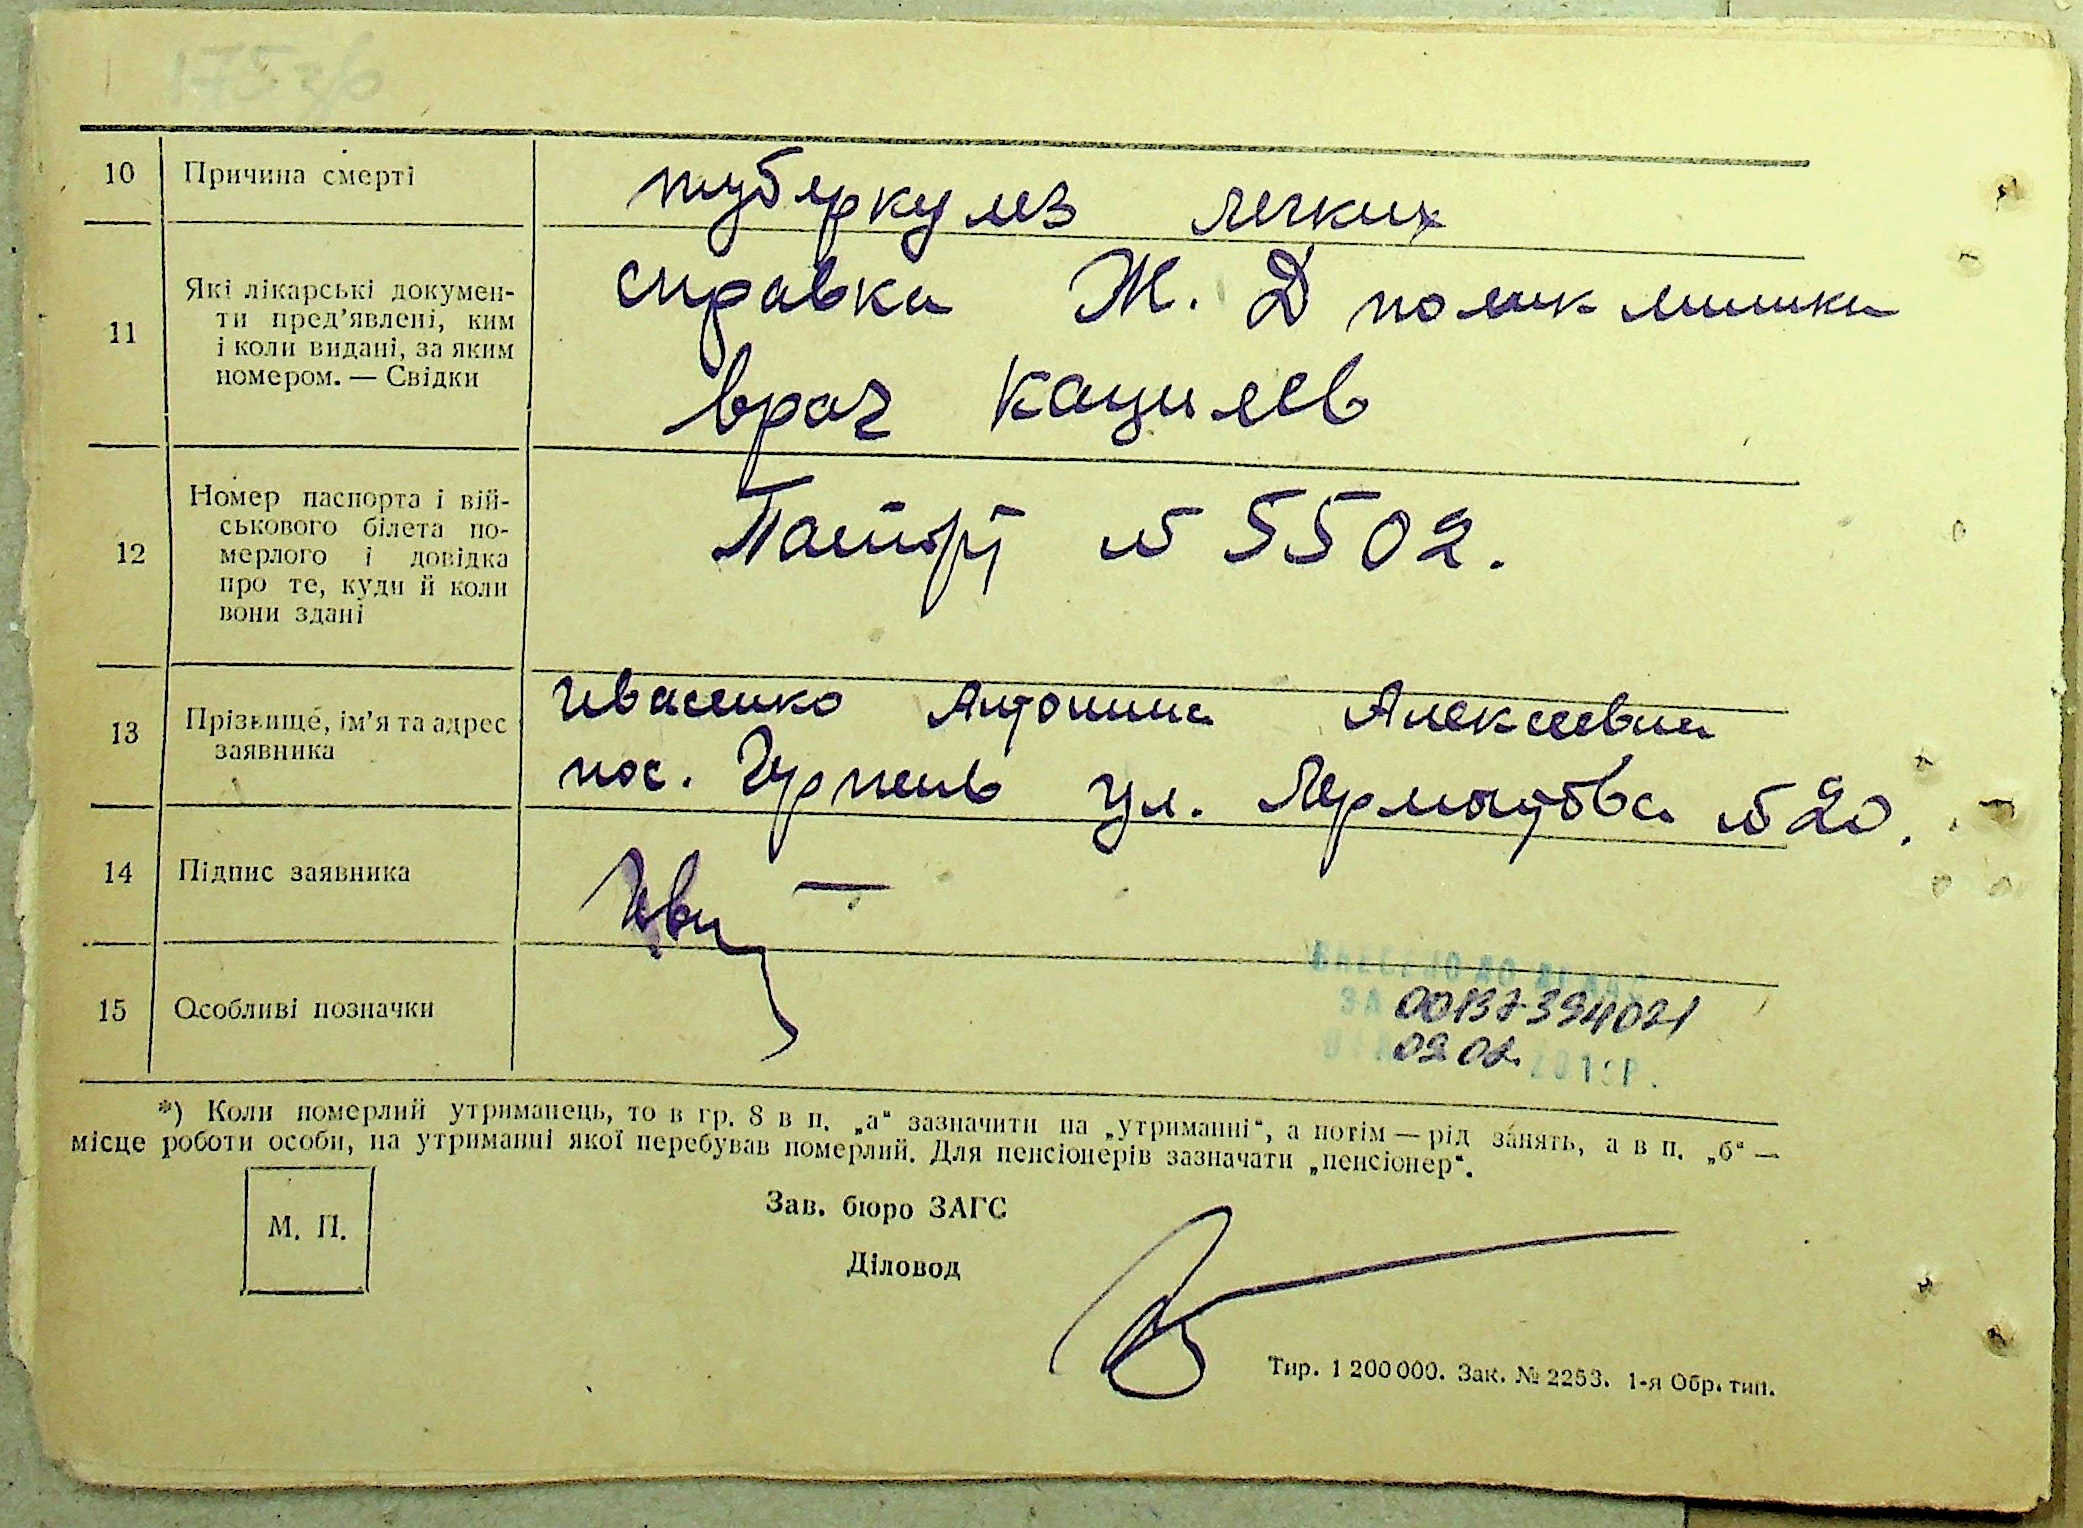 10 Причина смерті туберкулез легких
11 Які лікарські докумен-
ти пред'явлені, ким
і коли видані, за яким
номером. — Свідки
справка Ж. Д поликлиники
врач
12 Номер паспорта і вій-
ськового білета по-
мерлого і довідка
про те, куди й коли
вони здані
Паспорт № 5502.
13 Прізвище, ім'я та адрес
заявника
Ивасенко Антонина Алексеевна
пос. ул. Лермонтова № 20.
14 Підпис заявника
15 Особливі позначки
ЗА 00137394021
02 02
*) Коли померлий утриманець, то в гр. 8 в п. „а“ зазначити на „утриманні“, а потім — рід занять, а в п. „б“ —
місце роботи особи, на утриманні якої перебував померлий. Для пенсіонерів зазначати „пенсіонер“.
М. П.
Зав. бюро ЗАГС
Діловод
Тир. 1 200 000. Зак. № 2253. 1-я Обр. тип.